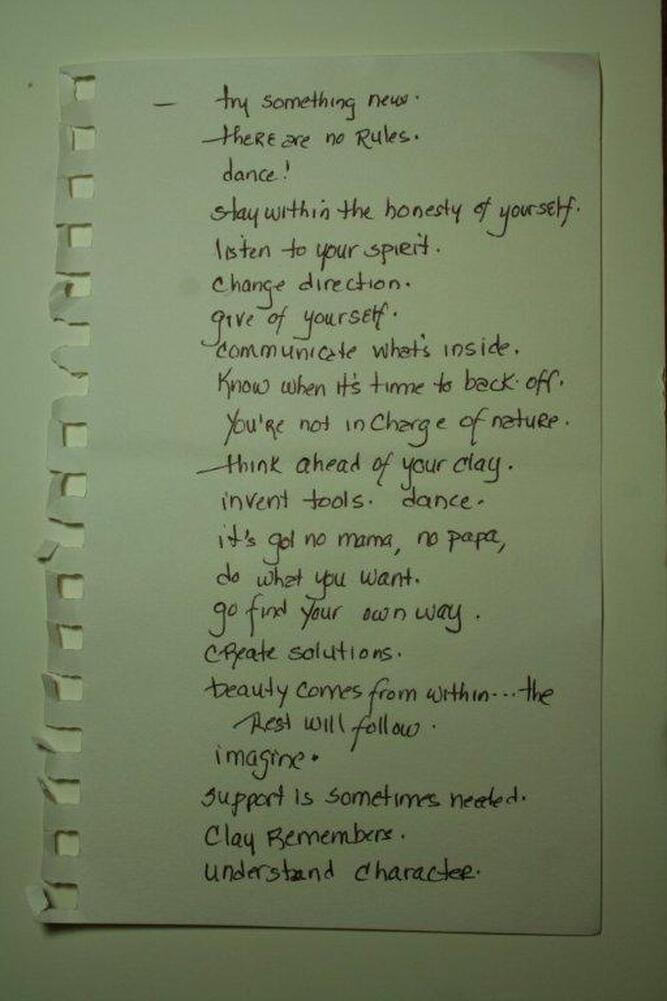 — try something new.
there are no Rules.
dance!
stay within the honesty of yourself.
listen to your spirit.
change direction.
give of yourself.
communicate what's inside.
Know when it's time to back off.
You're not in charge of nature.
think ahead of your clay.
invent tools. dance.
it's got no mama, no papa,
do what you want.
go find your own way.
create solutions.
beauty comes from within...the
Rest will follow.
imagine.
support is sometimes needed.
Clay Remembers.
understand character.